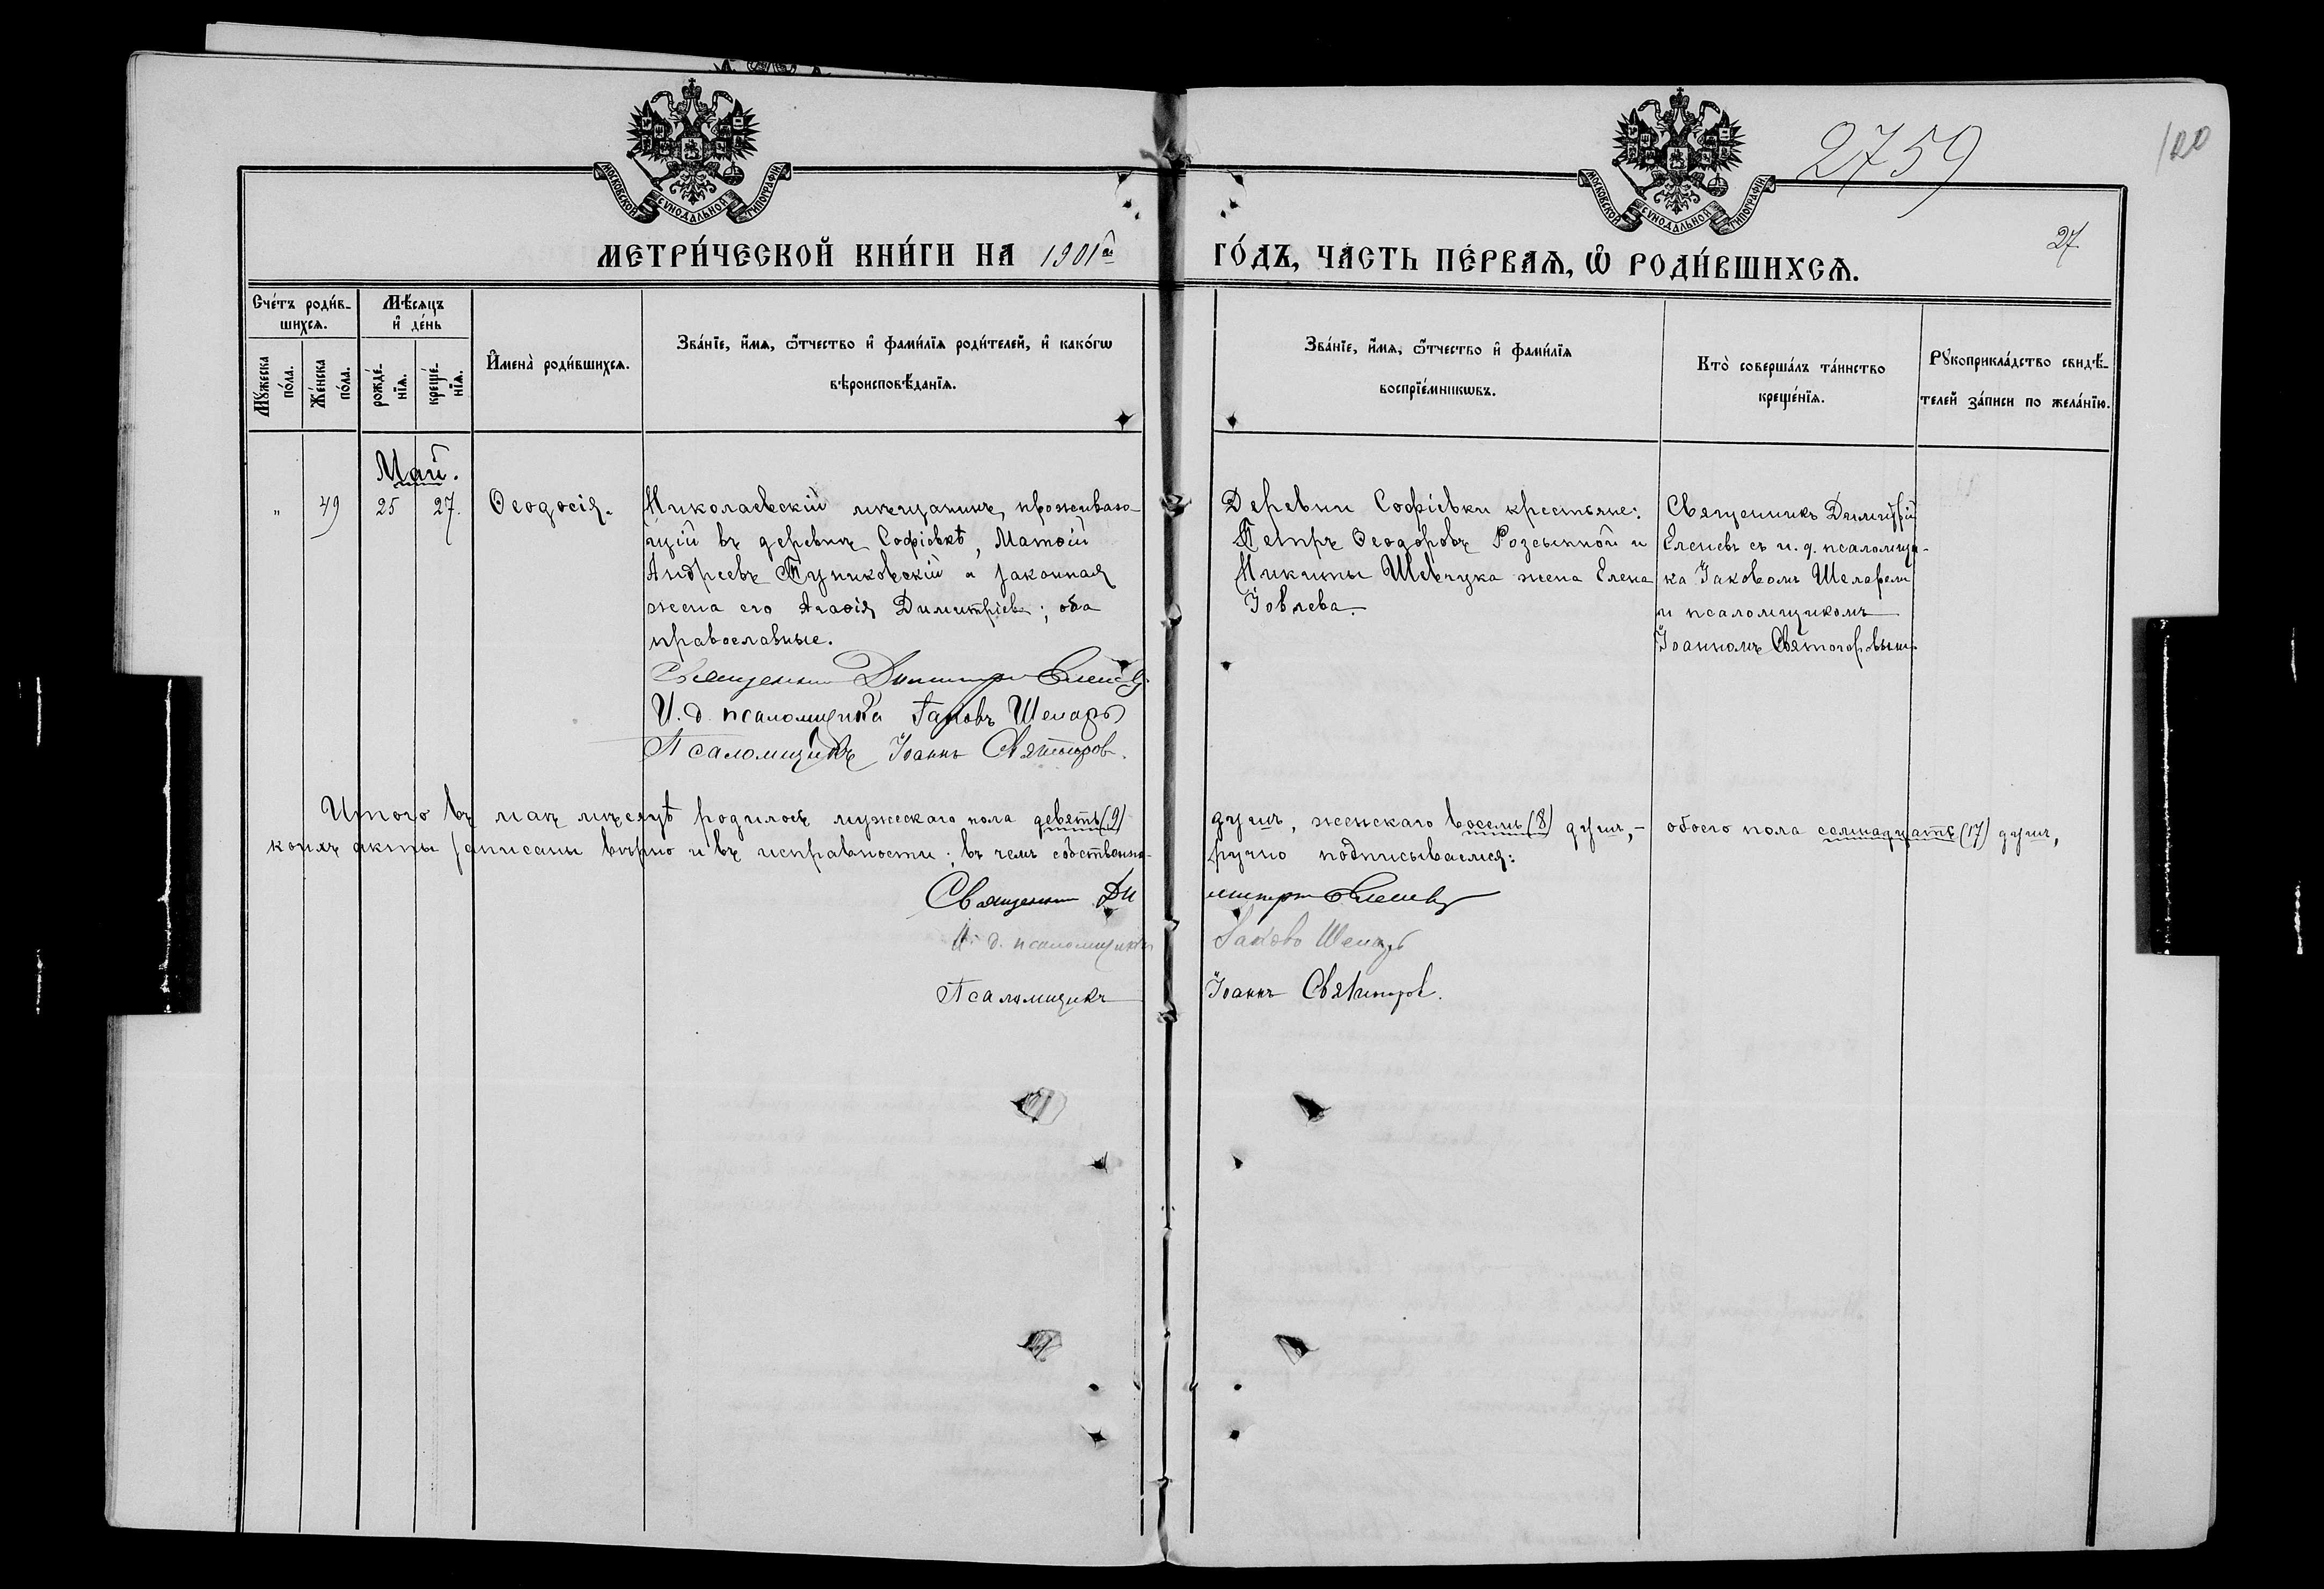 2759
120
27
МОСКОВСКОЙ СѴНОДАЛЬНОЙ ТИПОГРАФІИ
МОСКОВСКОЙ СѴНОДАЛЬНОЙ ТИПОГРАФІИ
МЕТРИ́ЧЕСКОЙ КНИ́ГИ НА 1901й ГО́ДЪ, ЧА́СТЬ ПЕ́РВАѦ, Ѽ РОДИ́ВШИХСѦ.
Сче́тъ роди́в-
шихсѧ.
Мꙋ́жеска
по́ла.
Же́нска
по́ла.
Мѣ́сѧцъ
и҆ де́нь
рожде́-
нїѧ.
креще́-
нїѧ.
И҆мена̀ роди́вшихсѧ.
Зва́нїе, и҆́мѧ, ѻ҆́тчество и҆ фами́лїѧ роди́телей, и҆ како́гѡ
вѣроисповѣ́данїѧ.
Зва́нїе, и҆́мѧ, ѻ҆́тчество и҆ фами́лїѧ
воспрїе́мникѡвъ.
Кто̀ соверша́лъ та́инство
креще́нїѧ.
Рꙋкоприкла́дство свидѣ́-
телей за́писи по жела́нїю.
Май.
" 49 25 27. Ѳеодосія.
Николаевскій мѣщанинъ, проживаю-
щій въ деревнѣ Софіевкѣ, Матѳій
Андреевъ Тупиковскій и законная
жена его Агаѳія Димитріева; оба
православные.
Священникъ Димитрій Еленевъ
И. д. псаломщика Іаковъ Шеларь
Псаломщикъ Іоаннъ Святогоров.
Деревни Софіевки крестьяне:
Петръ Ѳеодоровъ Розсыпной и
Никиты Шевчука жена Елена
Іовлева.
Священникъ Димитрій
Еленевъ съ и. д. псаломщи-
ка Іаковомъ
и псаломщикомъ
Іоанномъ Святогоровымъ
Итого въ маѣ мѣсяцѣ родилось мужескаго пола девять (9) душъ, женскаго восемь (8) душъ,- обоего пола семнадцать (17) душъ,
коихъ акты записаны вѣрно и въ исправности; въ чемъ собственно-ручно подписываемся:
Священникъ Димитрій Еленевъ
И. д. псаломщика Іаковъ Шеларь
Псаломщикъ Іоаннъ Святогоров.